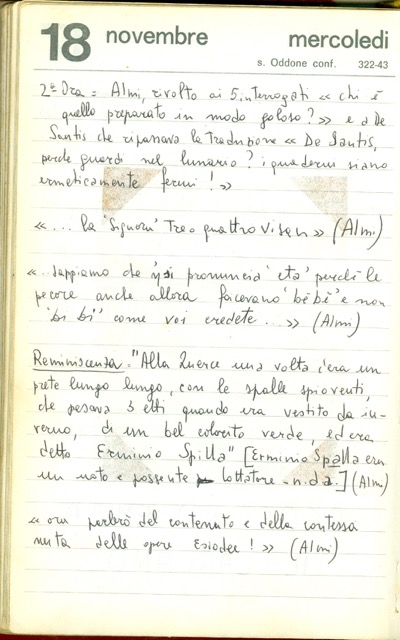 18 novembre mercoledì
s. Oddone conf. 322-43
2ª Ora = Almi, rivolto ai 5 interrogati « chi è
quello preparato in modo goloso? » e a De
Santis che ripassava la traduzione « De Santis,
perché guardi nel lunario? i quaderni siano
ermeticamente fermi! »
« ... la 'Signori' Tre o quattro Visen » (Almi)
« ...sappiamo che 'η' si pronuncia 'età' perché le
pecore anche allora facevano 'bè bè' e non
'bi bi' come voi credete... » (Almi)
Reminiscenza = "Alla Querce una volta c'era un
prete lungo lungo, con le spalle spioventi,
che pesava 3 etti quando era vestito da in-
verno, di un bel colorito verde, ed era
detto Erminio Spilla" [Erminio Spalla era
un noto e possente lottatore - n.d.a.] (Almi)
« ora parlerò del contenuto e della contessa
nuta delle opere Esiodee! » (Almi)